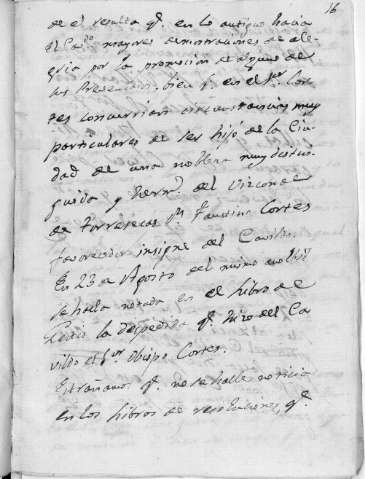 16
de el resulta q.e en lo antiguo hacia
el Cav.do mayores demostraciones de ale-
gria por la promocion de alguno de
sus Presen bien q.e en el S.or Cor-
tes concurrian circunstancias muy
particulares de ser hijo de la Ciu-
dad de una nobleza muy distin-
guida y herm.o del Vizconde
de Torresecas D.n Faustino Cortes
favorecedor insigne del Cavildo.
En 23 de Agosto del mismo
se halla notada en el Libro de
la despedida q.e hizo del Ca-
vildo el S.or Obispo Cortes.
Estrañamos q.e no se halle noticia
en los Libros de resoluciones, q.e